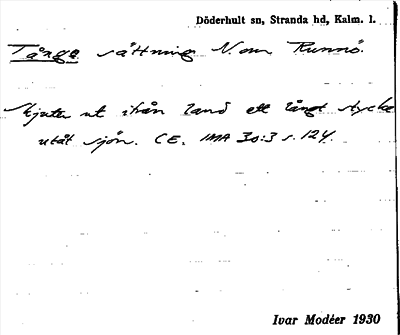 Döderhult sn, Stranda hd, Kalm. l.
Tånga sättning N. om Runnö.
Skjuter ut ifrån land ett långt stycke
utåt sjön. CE. IMA 30:3 s. 124.
Ivar Modéer 1930